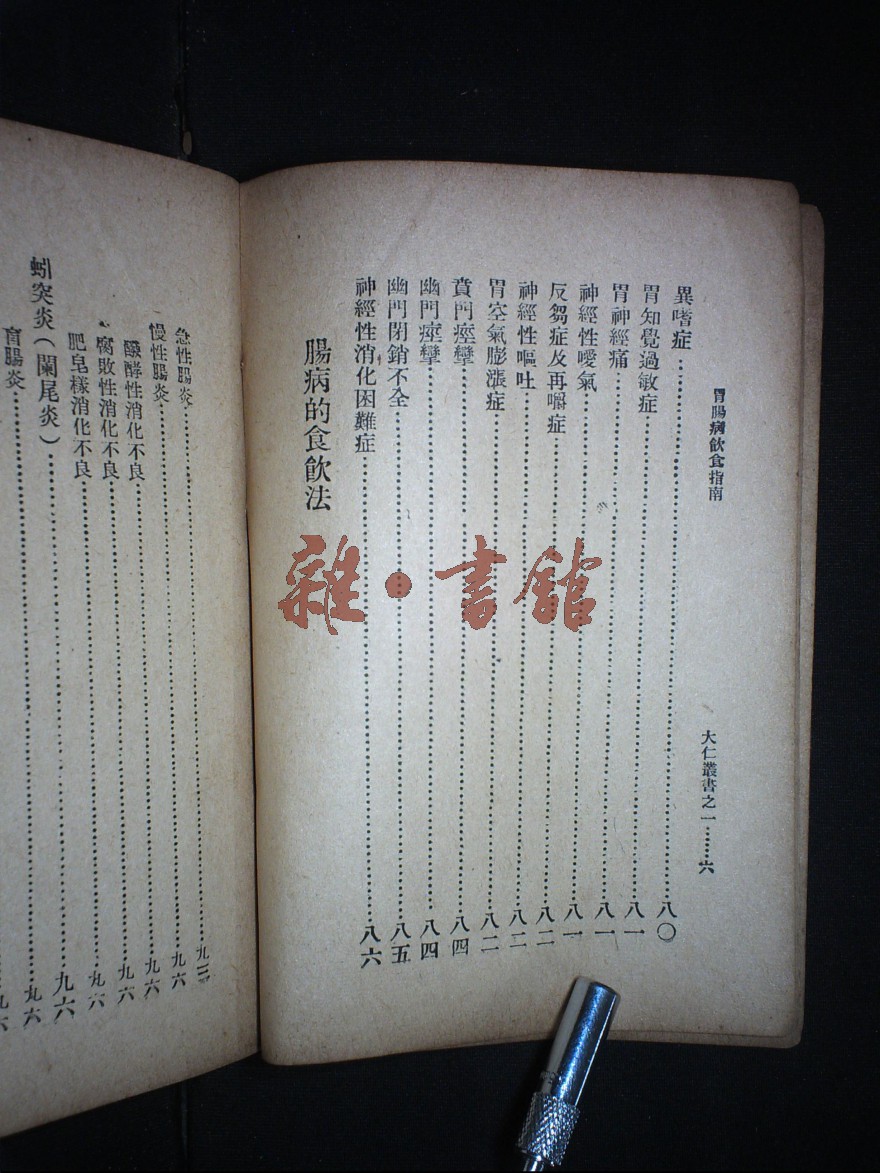 胃腸病飲食指南 大仁叢書之一……六
異嗜症……八〇
胃知覺過敏症……八一
胃神經痛……八一
神經性噯氣……八一
反芻症及再嚼症……八二
神經性嘔吐……八二
胃空氣膨漲症……八二
賁門痙攣……八四
幽門痙攣……八四
幽門閉銷不全……八五
神經性消化困難症……八六
腸病的食飲法
急性腸炎……九三
慢性腸炎……九六
醱酵性消化不良……九六
腐敗性消化不良……九六
肥皂樣消化不良……九六
蚓突炎(闌尾炎)……九六
盲腸炎……九六
九六
雜·書館